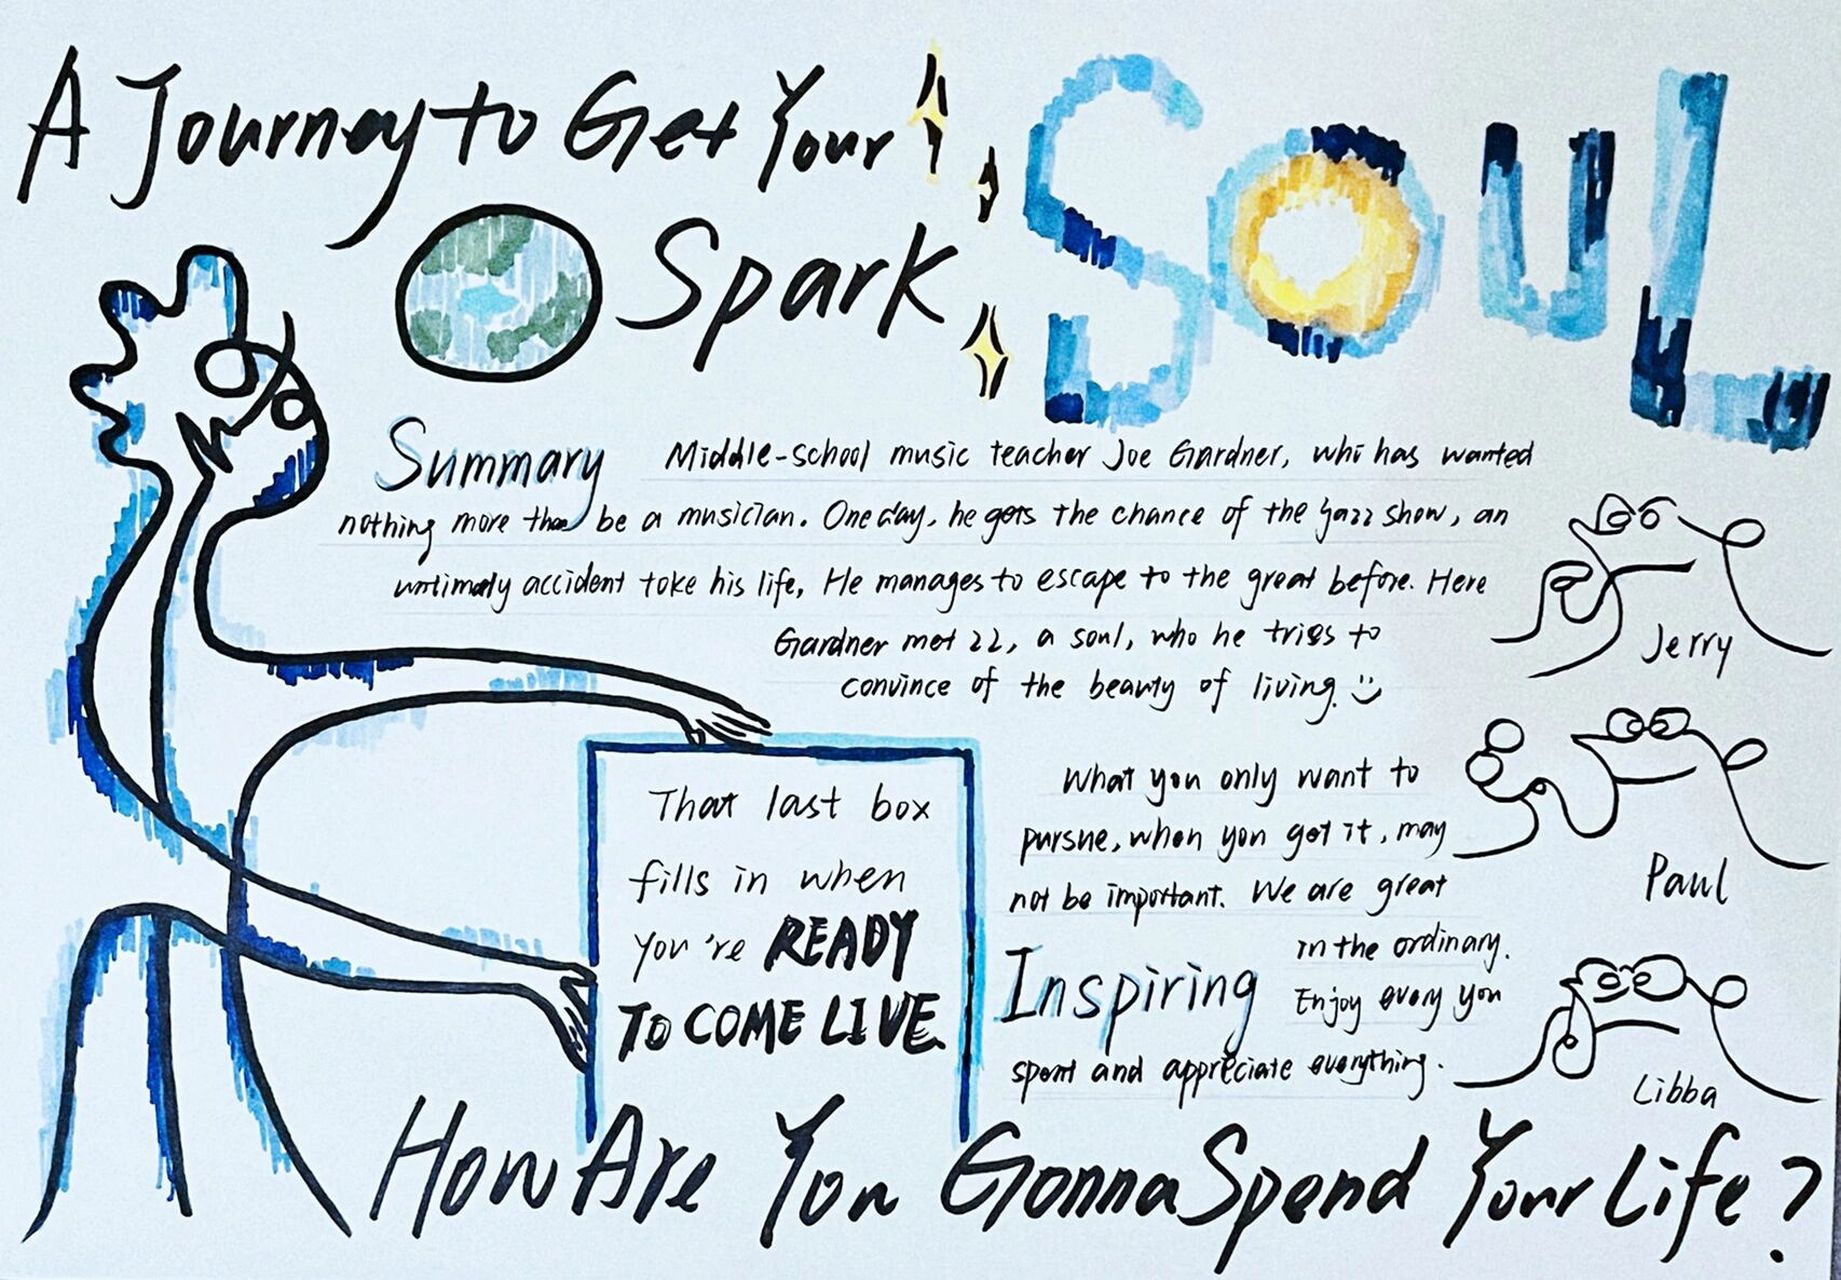 A Journey to Get Your
Spark
SOUL
Summary
Middle-school music teacher Joe Gardner, who has wanted
nothing more than be a musician. One day, he gets the chance of the jazz show, an
untimely accident take his life, He manages to escape to the great before. Here
Gardner met 22, a soul, who he tries to
convince of the beauty of living. :)
Jerry
That last box
fills in when
you're READY
TO COME LIVE.
What you only want to
pursue, when you got it, may
not be important. We are great
in the ordinary.
Inspiring
Enjoy every you
spent and appreciate everything.
Paul
Libba
How Are You Gonna Spend Your Life?